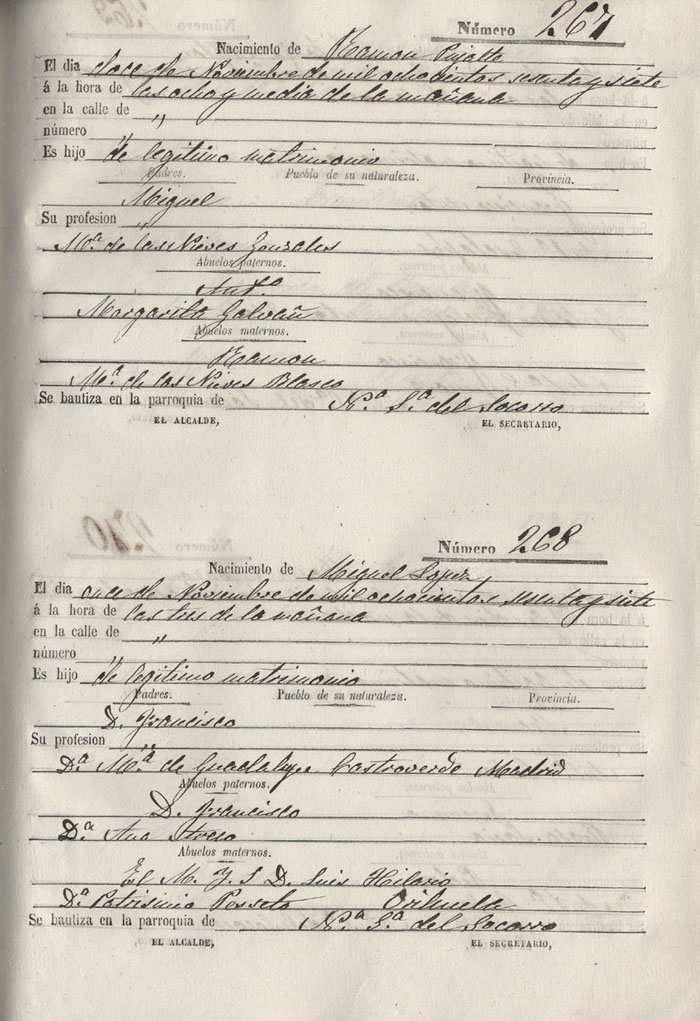 Número 267
Nacimiento de Ramon Pujalte
El dia doce de Noviembre de mil ochocientos sesenta y siete
á la hora de las ocho y media de la mañana
en la calle de "
número "
Es hijo de legitimo matrimonio
Padres. Pueblo de su naturaleza. Provincia.
Miguel
Su profesion "
Mª de las Nieves Gonzales
Abuelos paternos.
Antº
Margarita Galvañ
Abuelos maternos.
Ramon
Mª de las Nieves Blasco
Se bautiza en la parroquia de Nª Sª del Socorro
EL ALCALDE, EL SECRETARIO,
Número 268
Nacimiento de Miguel Lopez
El dia once de Noviembre de mil ochocientos sesenta y siete
á la hora de las tres de la mañana
en la calle de "
número "
Es hijo de legitimo matrimonio
Padres. Pueblo de su naturaleza. Provincia.
D. Francisco
Su profesion "
Dª Mª de Guadalupe Castroverde Madrid
Abuelos paternos.
D. Francisco
Dª Ana
Abuelos maternos.
El M. Y. S D. Luis Hilario
Dª Patrisinia Orihuela
Se bautiza en la parroquia de Nª Sª del Socorro
EL ALCALDE, EL SECRETARIO,